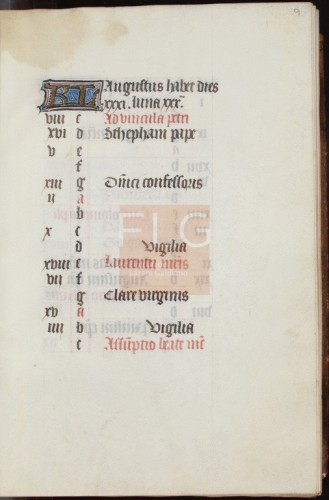 KL Augustus habet dies
xxxi. luna xxx.
viii c Ad vincula petri
xvi d Sthephani pape
v e
f
xiii g Dnici confessoris
ii a
b
x c
d Vigilia
xviii e Laurentii mris
vii f
g Clare virginis
xv a
iiii b Vigilia
c Assuptio beate